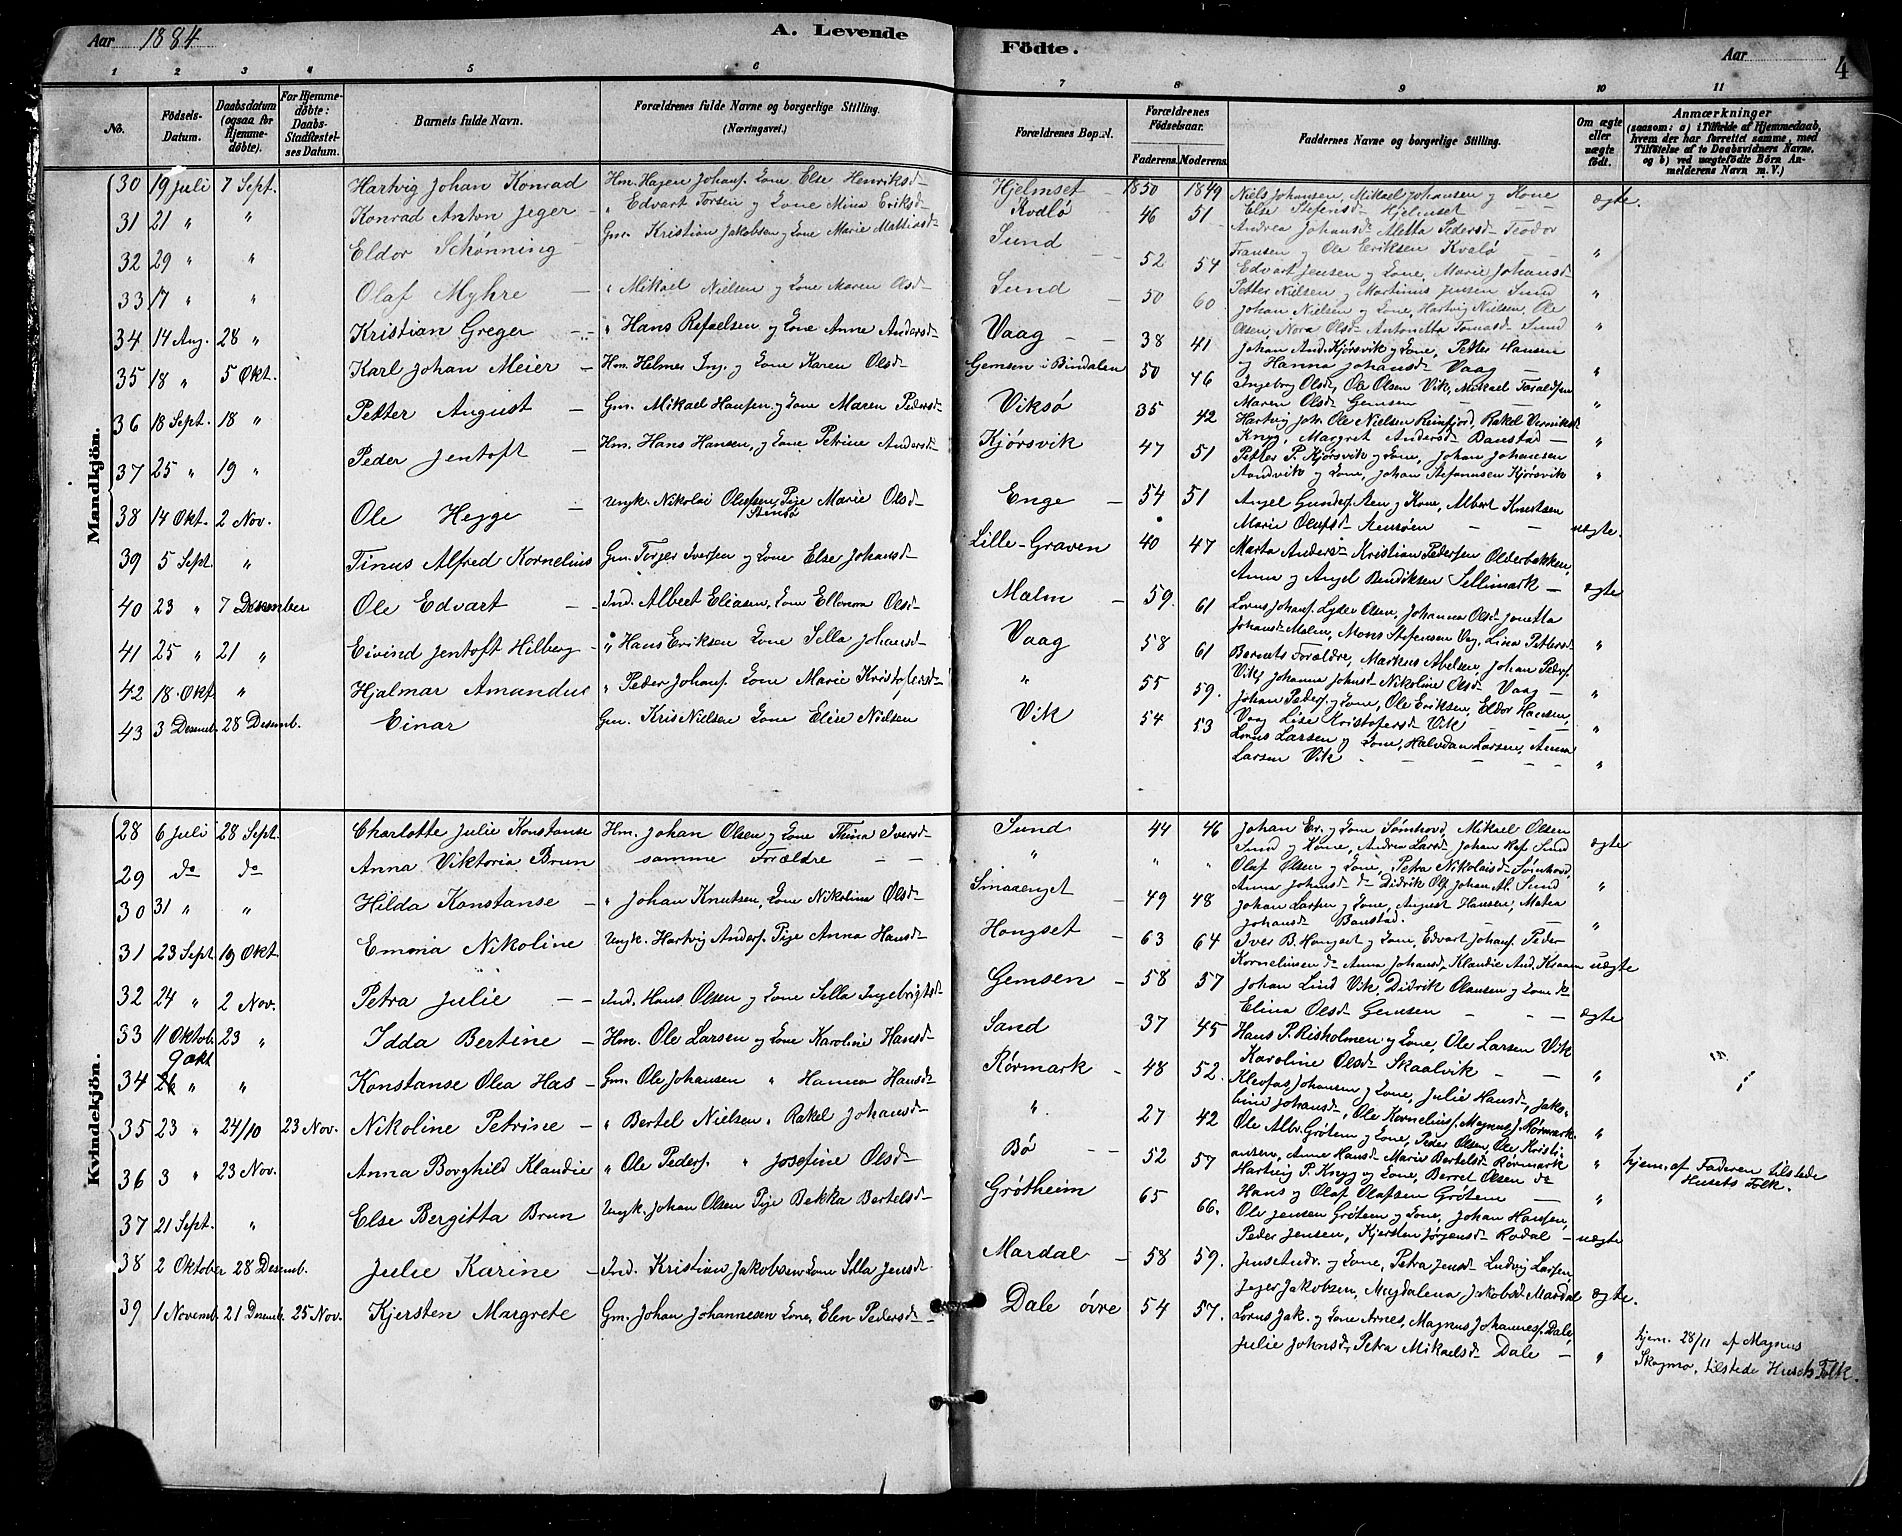 Aar 1884
A. Levende
Födte.
Aar
4
1 2 3 4 5 6 7 8 9 10 11
No.
Födsels-Datum.
Daabsdatum (ogsaa for Hjemmedöbte).
For Hjemmedöbte: Daabs-Stadfæstelses Datum.
Barnets fulde Navn.
Forældrenes fulde Navne og borgerlige Stilling.
(Næringsvei.)
Forældrenes Bopæl.
Forældrenes Födselsaar.
Faderens. Moderens.
Faddernes Navne og borgerlige Stilling.
Om ægte eller uægte födt.
Anmærkninger
(saasom: a) i Tilfælde af Hjemmedaab, hvem der har forrettet samme, med Tilföielse af to Daabsvidners Navne, og b) ved uægtefödte Börn Anmelderens Navn m. V.)
Mandkjön.
30 19 Juli 7 Sept. Hartvig Johan Konrad Hm. Hagen Johans. Kone Else Henriksd. Hjelmset 1850 1849 Niels Johansen, Mikael Johansen og Kone ægte.
Else Stefensd. Hjelmset
31 21 " " Konrad Anton Jeger " Edvart Torsen og Kone Mina Eriksd. Kvalø 46 51 Andrea Johansd. Aletta Pedersd. Teodor
Fransen og Ole Eriksen Kvalø "
32 29 " " Eldor Schønning Gm. Kristian Jakobsen og Kone Marie Mattiasd. Sund 52 54 Edvart Jensen og Kone, Marie Johansd.
Petter Nielsen og Martinus Jensen Sund "
33 17 " " Olaf Myhre " Mikael Nielsen og Kone Maren Olsd. Sund 50 60 Johan Nielsen og Kone, Hartvig Nielsen, Ole
Olsen, Nora Olsd. Antonetta Tomasd. Sund "
34 14 Aug. 28 " Kristian Greger " Hans Rafaelsen og Kone Anne Andersd. Vaag 38 41 Johan And. Kjørsvik og Kone, Petter Hansen
og Hanna Johansd. Vaag "
35 18 " 5 Okt. Karl Johan Meier Hm. Helmer Ing. og Kone Karen Olsd. Gemsen i Bindalen 50 46 Ingeborg Olsd. Ole Olsen Vik, Mikael
Maren Olsd. Gemsen "
36 18 Sept. 18 " Petter August Gm. Mikael Hansen og Kone Maren Pedersd. Viksø 35 42 Hartvig Joh. Ole Nielsen Rakel
Knyg, Margret Andersd. Banstad "
37 25 " 19 " Peder Jentoft Hm. Hans Hansen, og Kone Petrine Andersd. Kjørsvik 47 51 Petter P. Kjørsvik og Kone, Johan Johansen
Sandvik og Kone, Johan Stefanusen Kjørsvik "
38 14 Okt. 2 Nov. Ole Hegge Ungk. Nikolai Olufsen, Pige Marie Olsd. Enge 54 51 Angel og Kone, Albert Knutsen
Marie Olufsd. uægte.
39 5 Sept. " Tinus Alfred Kornelius Gm. Torger Iversen og Kone Else Johansd. Lille-Graven 40 47 Marta Andersd. Kristian Pedersen Olderbakken,
Anne og Angel Bendiksen Sellimark ægte
40 23 " 7 Desember Ole Edvart Ind. Albert Eliasen, Kone Ellonora Olsd. Malm 59 61 Lorns Johans. Lyder Olsen, Johanna Olsd. Jonetta
Johansd. Malm, Mons Stefensen Vag, Lina Pettersd. "
41 25 " 21 " Eivind Jentoft Hilberg " Hans Eriksen Kone Sella Johansd. Vaag 58 61 Barnets Forældre, Markus Abelsen, Johan Peders.
Vik, Johanna Johnsd. Nikoline Olsd. Vaag "
42 18 Okt. " Hjalmar Amandus " Peder Johans. Kone Marie Kristofersd. " 55 59. Johan Peders. og Kone, Ole Eriksen, Eldor Hansen,
Vaag Lise Kristofersd. Vik "
43 3 Desemb. 28 Desemb. Einar Gm. Kris Nielsen Kone Elise Nielsen Vik 54 53 Lorns Larsen og Kone, Halvdan Larsen, Anna
Larsen Vik "
Kvindekjön.
28 6 Juli 28 Sept. Charlotte Julie Konstanse Hm. Johan Olsen og Kone Thina Iversd. Sund 44 46 Johan Er. og Kone Sømhovd, Mikael Olsen
Sund og Kone, Andrea Larsd. Johan Sund ægte
29 do do Anna Viktoria Brun samme Forældre " " " Olaf Olsen og Kone, Petra Nikolaisd. Sømhovd,
Anna Johansd. do Didrik Ols. Johan Al. Sund "
30 31 " " Hilda Konstanse " Johan Knutsen, Kone Nikoline Olsd. Smaaenget 49 48 Johan Larsen og Kone, August Hansen, Metea
Johansd. Banstad. "
31 23 Sept. 19 Okt. Emma Nikoline Ungk. Hartvig Anders. Pige Anna Hansd. Hongset 63 64 Iver B. Hongset og Kone, Edvart Johans. Peder
Korneliusen do Anna Johansd. Klaudie And. uægte
32 24 " 2 Nov. Petra Julie Ind. Hans Olsen og Kone Sella Ingebrigtsd. Gemsen 58 57 Johan Lind Vik, Didrik Olausen og Kone do
Elina Olsd. Gemsen ægte
33 11 Oktob. 23 " Idda Bertine Hm. Ole Larsen og Kone Karoline Hansd. Sand 37 45 Hans P. Risholmen og Kone, Ole Larsen Vik
Karoline Olsd. Skaalvik "
9 okt
34 26 " " Konstanse Olea Has Gm. Ole Johansen " Hanna Hansd. Rørmark 48 52. Kleofas Johansen og Kone, Julie Hansd., Jako-
bine Johansd., Ole Kornelius. Magnus J. Rørmark. "
35 23 " 24/10 23 Nov. Nikoline Petrine " Bertel Nielsen " Rakel Johansd. " 27 42 Ole Alb. Grøtem og Kone, Peder Olsen, Ole Kristi-
ansen, Anne Hansd. Marie Bertelsd. Rørmark " hjem. af Faderen tilstede
Husets Folk.
36 3 " 23 Nov. Anna Borghild Klaudie " Ole Peders. " Josefine Olsd. Bø 52 57 Hartvig P. Knyg og Kone, Berret Olsen do
Hans og Olaf Olafsen Grøtem "
37 21 Sept. " Else Bergitta Brun Ungk. Johan Olsen Pige Bekka Bertelsd. Grøtheim 65 66. Ole Jensen Grøtem og Kone, Johan Hansen,
Peder Jensen, Kjersten Jørgensd. Rodal uægte
38 2 Oktober 28 Desemb. Julie Karine Ind. Kristian Jakobsen Kone Sella Jensd. Mardal 58 59. Jens Andr. og Kone, Petra Jensd. Ludvig Larsen,
Jeger Jakobsen, Magdalena Jakobsd. Mardal ægte.
39 1 Novemb. 21 Desemb. 25 Nov. Kjersten Margrete Gm. Johan Johannesen Kone, Elen Pedersd. Dale øvre 54 57. Lorns Jak. og Kone Arnes, Magnus Johannes. Dale,
Julie Johnsd., Petra Mikaelsd. Dale " hjem. 28/11 af Magnus
Skogmo, tilstede Husets Folk.